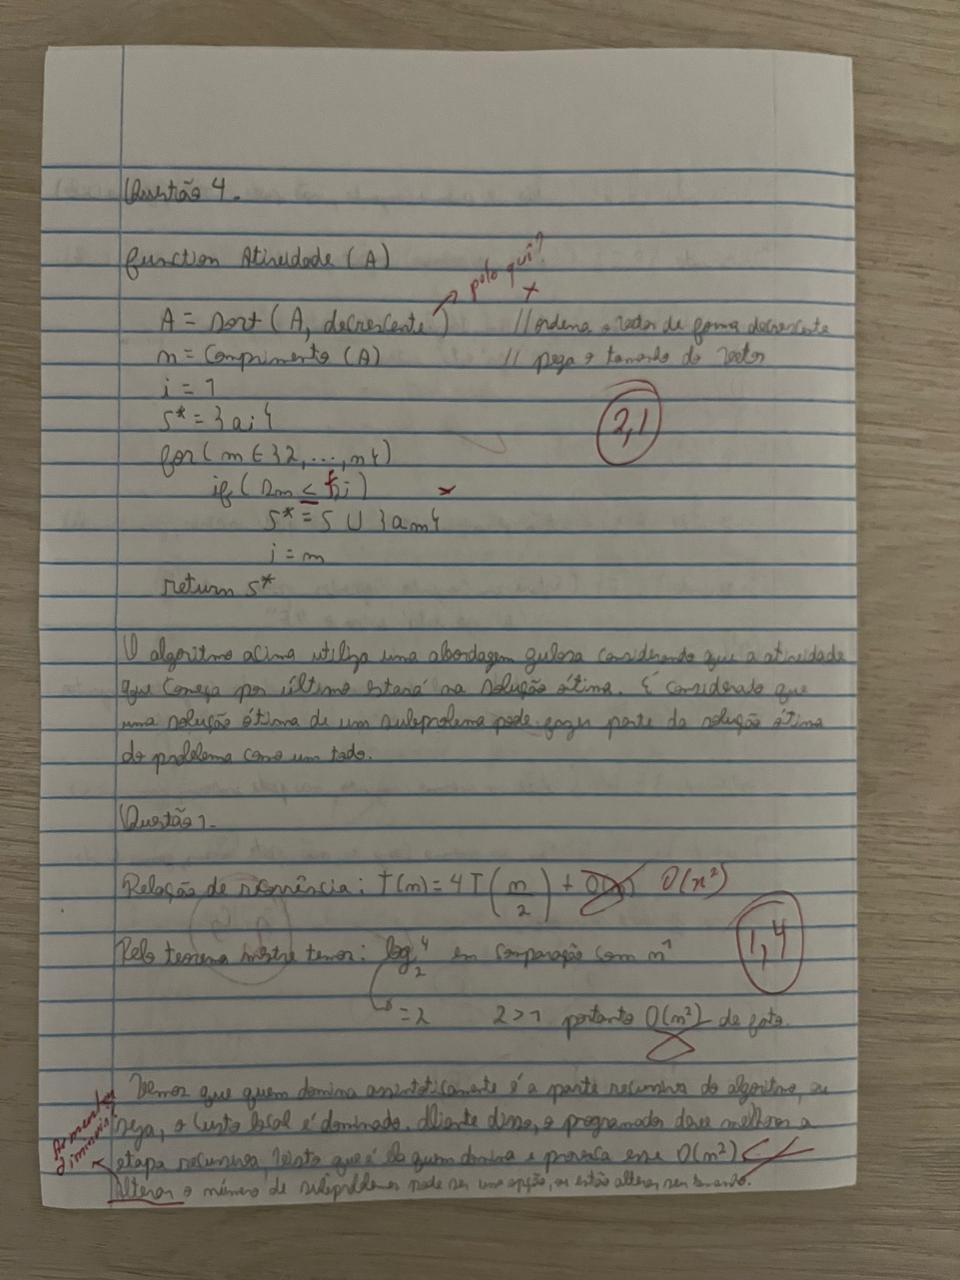 Questão 4.
function Atividade (A)
pelo quê?
A = sort (A, decrescente) // ordena o vetor de forma decrescente
n = Comprimento (A) // pega o tamanho do vetor
i = 1
S* = {ai}
2,1
for (m ∈ {2, ..., n})
if (sm ≤ fi)
S* = S U {am}
i = m
return S*
O algoritmo acima utiliza uma abordagem gulosa considerando que a atividade
que começa por último estará na solução ótima. É considerado que
uma solução ótima de um subproblema pode fazer parte da solução ótima
do problema como um todo.
Questão 1.
Relação de recorrência: T(n) = 4T(n/2) + O(n) O(n²)
Pelo teorema mestre temos: log₂4 em comparação com n¹
1,4
= 2 2 > 1 portanto O(n²) de fato.
Vemos que quem domina assintoticamente é a parte recursiva do algoritmo, ou
seja, o custo local é dominado. Diante disso, o programador deve melhorar a
Aumentar
diminuir?
etapa recursiva, visto que é ela quem domina e provoca esse O(n²)
Alterar o número de subproblemas pode ser uma opção, ou então alterar seu tamanho.